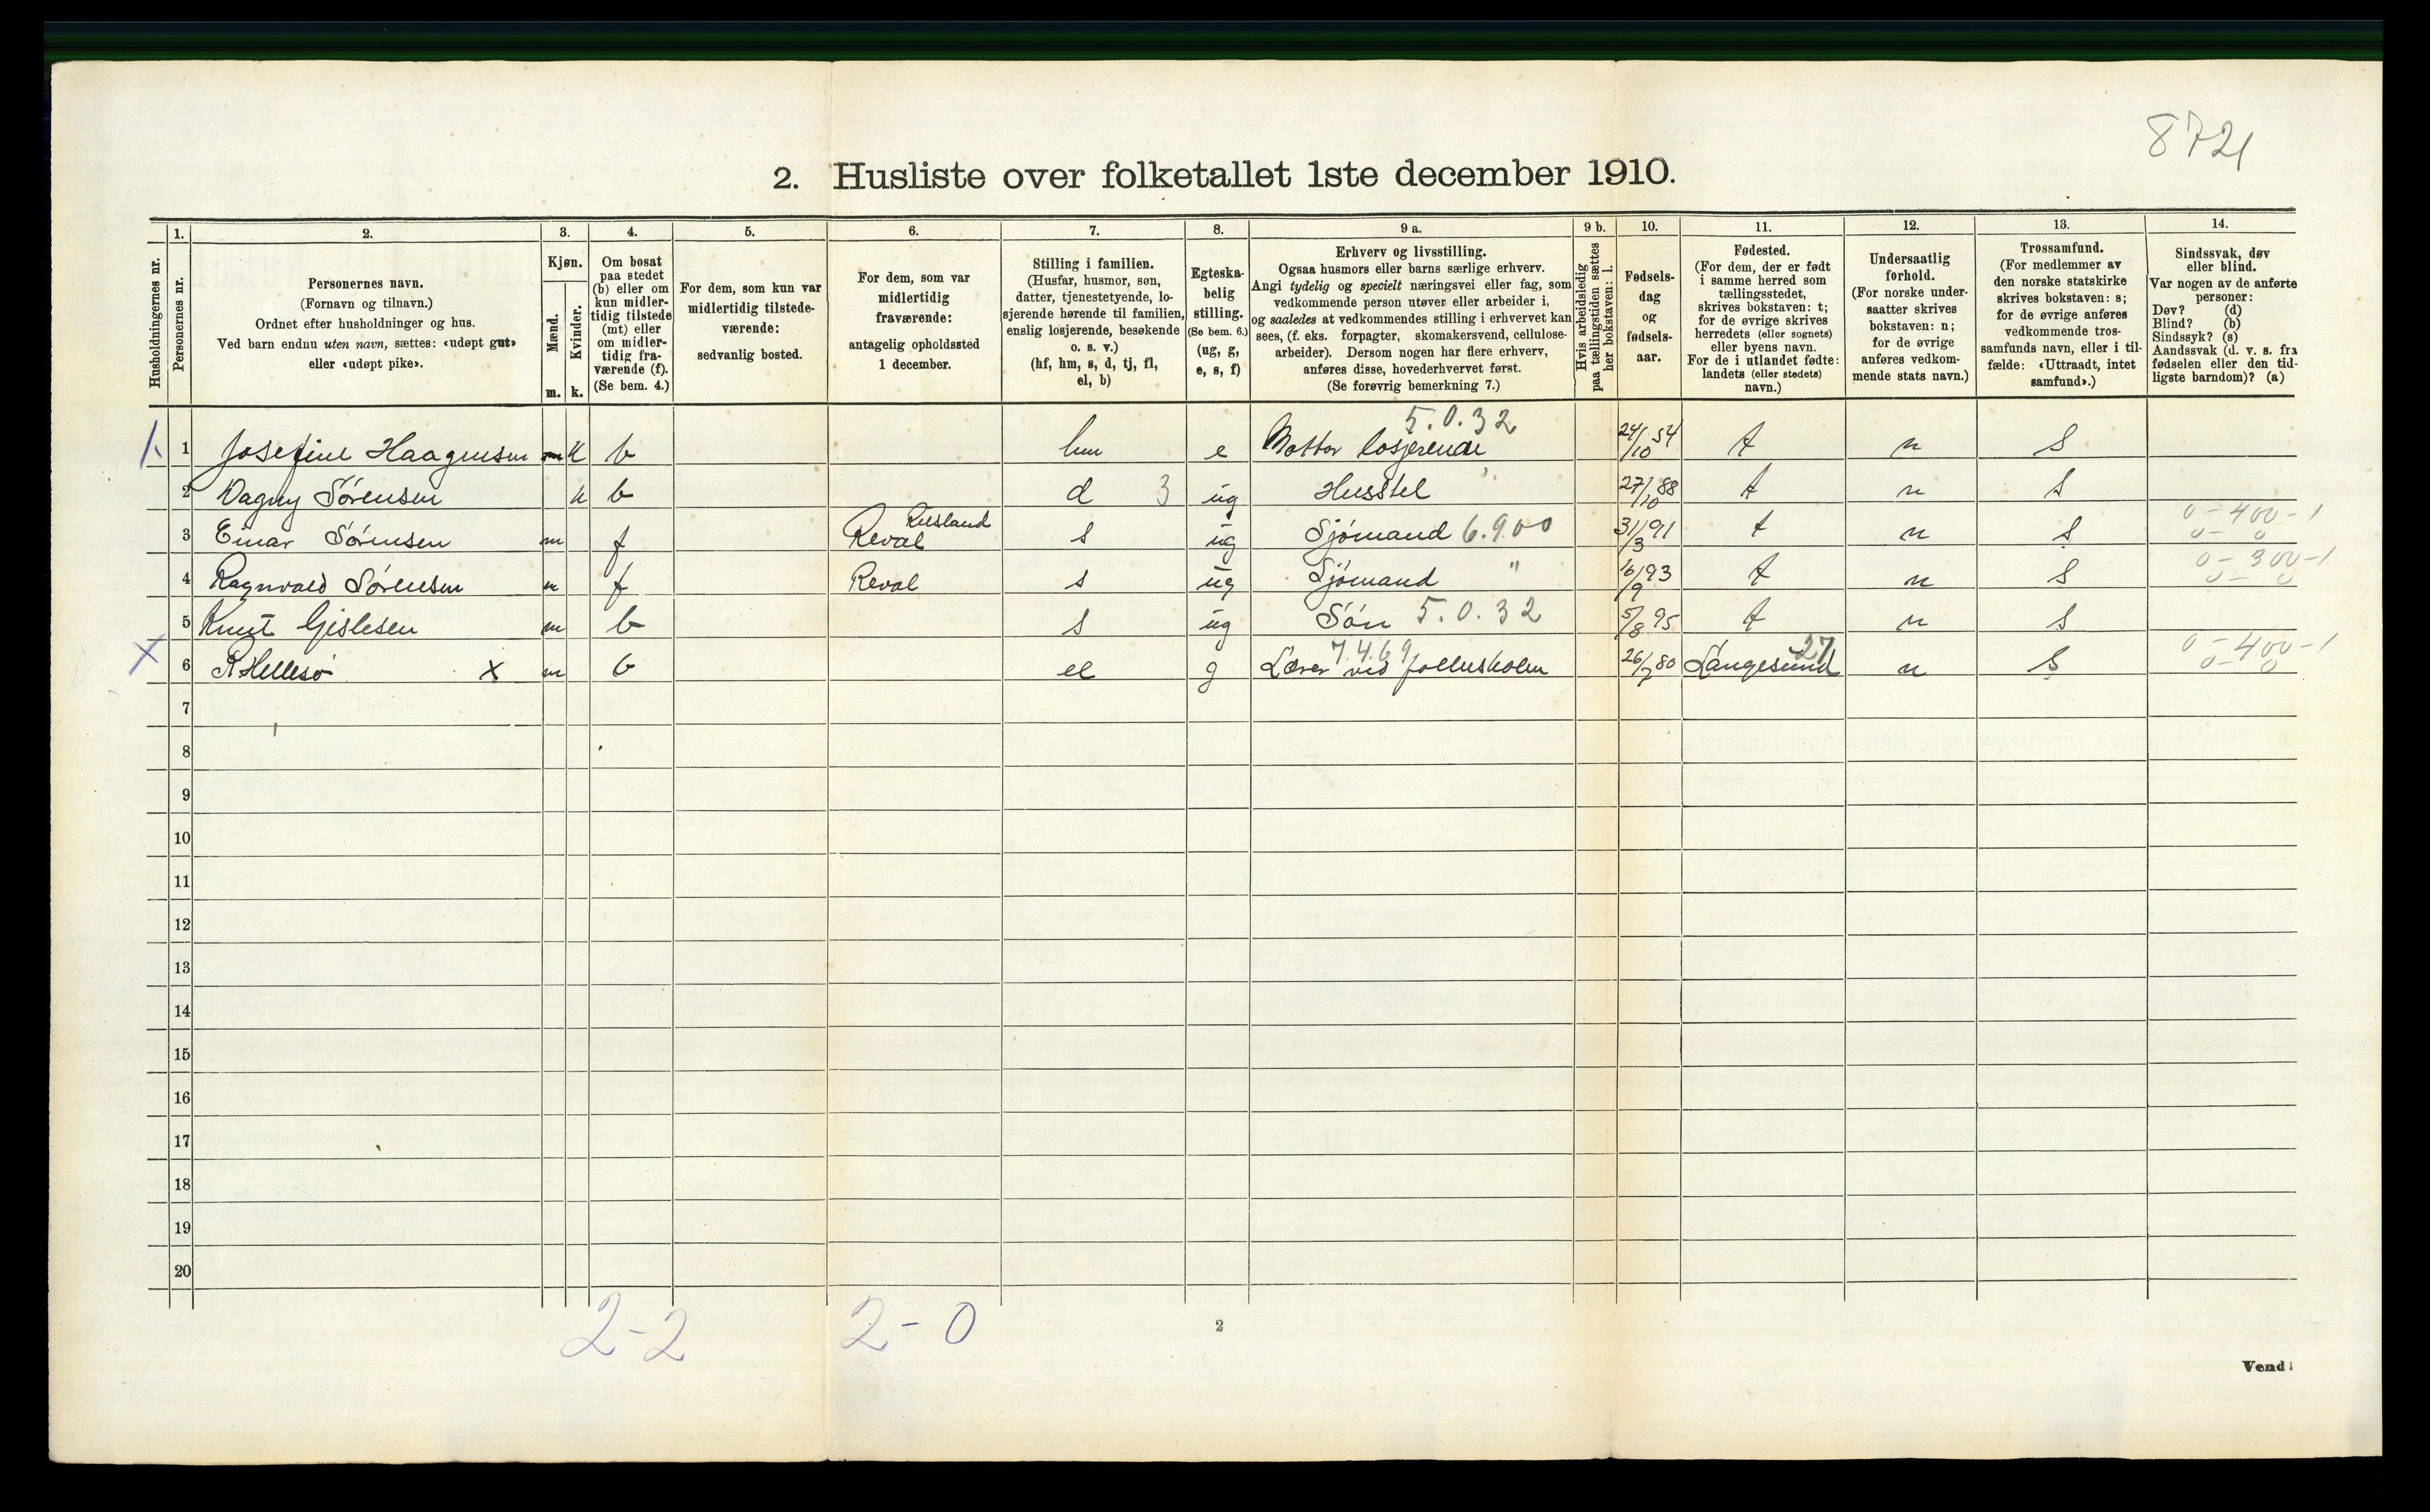 8721
2. Husliste over folketallet 1ste december 1910.
Husholdningernes nr.
1. Personernes nr.
2. Personernes navn. (Fornavn og tilnavn.) Ordnet efter husholdninger og hus. Ved barn endnu uten navn, sættes: «udøpt gut» eller «udøpt pike».
3. Kjøn. Mænd. m. Kvinder. k.
4. Om bosat paa stedet (b) eller om kun midlertidig tilstede (mt) eller om midlertidig fraværende (f). (Se bem. 4.)
5. For dem, som kun var midlertidig tilstedeværende: sedvanlig bosted.
6. For dem, som var midlertidig fraværende: antagelig opholdssted 1 december.
7. Stilling i familien. (Husfar, husmor, søn, datter, tjenestetyende, losjerende hørende til familien, enslig losjerende, besøkende o. s. v.) (hf, hm, s, d, tj, fl, el, b)
8. Egteskabelig stilling. (Se bem. 6.) (ug, g, e, s, f)
9 a. Erhverv og livsstilling. Ogsaa husmors eller barns særlige erhverv. Angi tydelig og specielt næringsvei eller fag, som vedkommende person utøver eller arbeider i, og saaledes at vedkommendes stilling i erhvervet kan sees, (f. eks. forpagter, skomakersvend, cellulosearbeider). Dersom nogen har flere erhverv, anføres disse, hovederhvervet først. (Se forøvrig bemerkning 7.)
9 b. Hvis arbeidsledig paa tællingstiden sættes her bokstaven: l.
10. Fødselsdag og fødselsaar.
11. Fødested. (For dem, der er født i samme herred som tællingsstedet, skrives bokstaven: t; for de øvrige skrives herredets (eller sognets) eller byens navn. For de i utlandet fødte: landets (eller stedets) navn.)
12. Undersaatlig forhold. (For norske undersaatter skrives bokstaven: n; for de øvrige anføres vedkommende stats navn.)
13. Trossamfund. (For medlemmer av den norske statskirke skrives bokstaven: s; for de øvrige anføres vedkommende trossamfunds navn, eller i tilfælde: «Uttraadt, intet samfund».)
14. Sindssvak, døv eller blind. Var nogen av de anførte personer: Døv? (d) Blind? (b) Sindssyk? (s) Aandssvak (d. v. s. fra fødselen eller den tidligste barndom)? (a)
1 Josefine Haagensen m k b hm e Mottar losjerende 5.0.32 24/10 54 t n S
2 Dagny Sørensen k b d 3 ug Husstel " 27/10 88 t n S
3 Einar Sørensen m f Reval Rusland s ug Sjømand 6.900 31/3 91 t n S 0-400-1 0-0
4 Ragnvald Sørensen m f Reval s ug Sjømand " 16/9 93 t n S 0-300-1 0-0
5 Knut Gislesen m b s ug Søn 5.0.32 5/8 95 t n S
X 6 R Hellesø X m b el g Lærer ved 7.4.69 26/2 80 Langesund 27 n S 0-400-1 0-0
7
8
9
10
11
12
13
14
15
16
17
18
19
20
2-2 2-0
2
Vend!